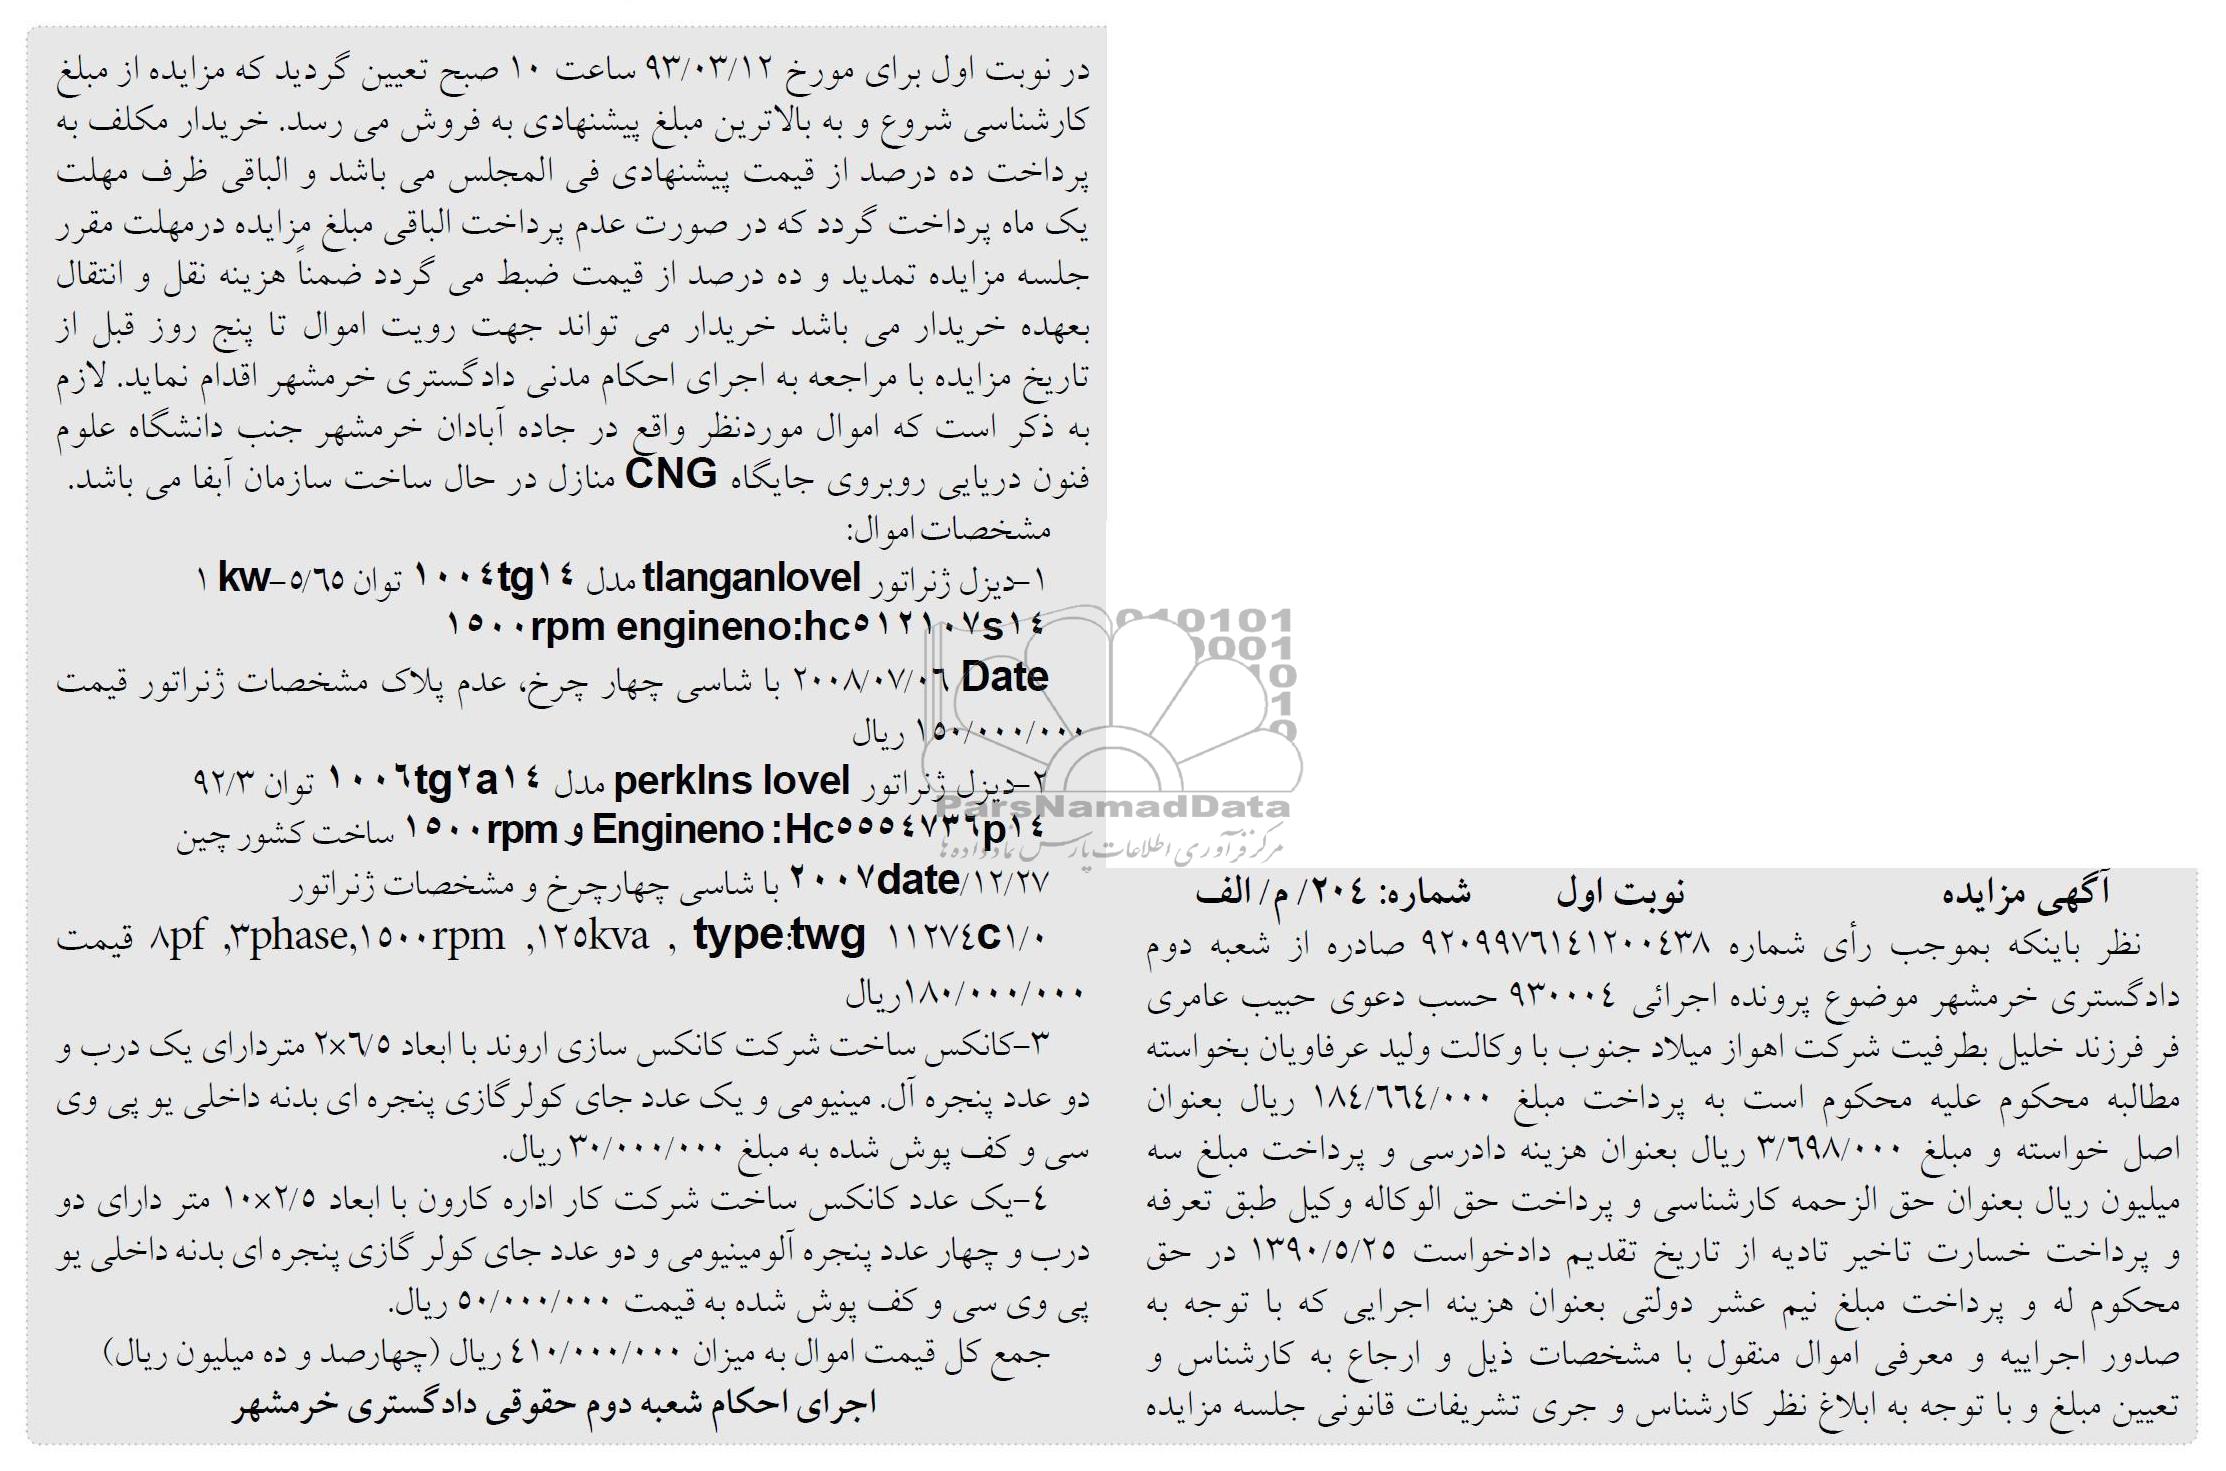 آگهی مزایده نوبت اول شماره: ٢٠٤/ م/ الف
نظر باینکه بموجب رأی شماره ٩٢٠٩٩٧٦١٤١٢٠٠٤٣٨ صادره از شعبه دوم
دادگستری خرمشهر موضوع پرونده اجرائی ٩٣٠٠٠٤ حسب دعوی حبیب عامری
فر فرزند خلیل بطرفیت شرکت اهواز میلاد جنوب با وکالت ولید عرفاویان بخواسته
مطالبه محکوم علیه محکوم است به پرداخت مبلغ ١٨٤/٦٦٤/٠٠٠ ریال بعنوان
اصل خواسته و مبلغ ٣/٦٩٨/٠٠٠ ریال بعنوان هزینه دادرسی و پرداخت مبلغ سه
میلیون ریال بعنوان حق الزحمه کارشناسی و پرداخت حق الوکاله وکیل طبق تعرفه
و پرداخت خسارت تاخیر تادیه از تاریخ تقدیم دادخواست ١٣٩٠/٥/٢٥ در حق
محکوم له و پرداخت مبلغ نیم عشر دولتی بعنوان هزینه اجرایی که با توجه به
صدور اجراییه و معرفی اموال منقول با مشخصات ذیل و ارجاع به کارشناس و
تعیین مبلغ و با توجه به ابلاغ نظر کارشناس و جری تشریفات قانونی جلسه مزایده
در نوبت اول برای مورخ ٩٣/٠٣/١٢ ساعت ١٠ صبح تعیین گردید که مزایده از مبلغ
کارشناسی شروع و به بالاترین مبلغ پیشنهادی به فروش می رسد. خریدار مکلف به
پرداخت ده درصد از قیمت پیشنهادی فی المجلس می باشد و الباقی ظرف مهلت
یک ماه پرداخت گردد که در صورت عدم پرداخت الباقی مبلغ مزایده درمهلت مقرر
جلسه مزایده تمدید و ده درصد از قیمت ضبط می گردد ضمناً هزینه نقل و انتقال
بعهده خریدار می باشد خریدار می تواند جهت رویت اموال تا پنج روز قبل از
تاریخ مزایده با مراجعه به اجرای احکام مدنی دادگستری خرمشهر اقدام نماید. لازم
به ذکر است که اموال موردنظر واقع در جاده آبادان خرمشهر جنب دانشگاه علوم
فنون دریایی روبروی جایگاه CNG منازل در حال ساخت سازمان آبفا می باشد.
مشخصات اموال:
١-دیزل ژنراتور tlanganlovel مدل ١٠٠٤tg١٤ توان ٥/٦٥-kw ١
١٥٠٠rpm engineno:hc٥١٢١٠٧s١٤
Date ٢٠٠٨/٠٧/٠٦ با شاسی چهار چرخ، عدم پلاک مشخصات ژنراتور قیمت
١٥٠/٠٠٠/٠٠٠ ریال
٢-دیزل ژنراتور perklns lovel مدل ١٠٠٦tg٢a١٤ توان ٩٢/٣
Engineno :Hc٥٥٥٤٧٣٦p١٤ و ١٥٠٠rpm ساخت کشور چین
٢٠٠٧date/١٢/٢٧ با شاسی چهارچرخ و مشخصات ژنراتور
٨pf ,٣phase,١٥٠٠rpm ,١٢٥kva , type:twg ١١٢٧٤c١/٠ قیمت
١٨٠/٠٠٠/٠٠٠ریال
٣-کانکس ساخت شرکت کانکس سازی اروند با ابعاد ٢×٦/٥ متردارای یک درب و
دو عدد پنجره آل. مینیومی و یک عدد جای کولرگازی پنجره ای بدنه داخلی یو پی وی
سی و کف پوش شده به مبلغ ٣٠/٠٠٠/٠٠٠ ریال.
٤-یک عدد کانکس ساخت شرکت کار اداره کارون با ابعاد ١٠×٢/٥ متر دارای دو
درب و چهار عدد پنجره آلومینیومی و دو عدد جای کولر گازی پنجره ای بدنه داخلی یو
پی وی سی و کف پوش شده به قیمت ٥٠/٠٠٠/٠٠٠ ریال.
جمع کل قیمت اموال به میزان ٤١٠/٠٠٠/٠٠٠ ریال (چهارصد و ده میلیون ریال)
اجرای احکام شعبه دوم حقوقی دادگستری خرمشهر
ParsNamadData
مرکز فرآوری اطلاعات پارس نماد داده ها